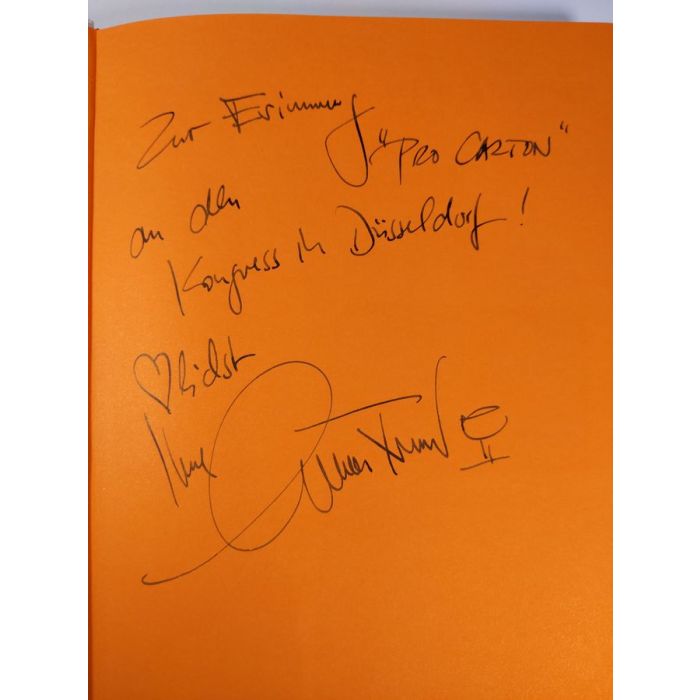 Zur Erinnerung
an den "PRO CARTON"
Kongress in Düsseldorf!
♡lichst
Ihre